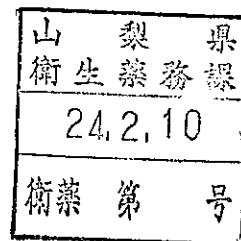 山梨県
衛生薬務課
24.2.10
衛薬第　号